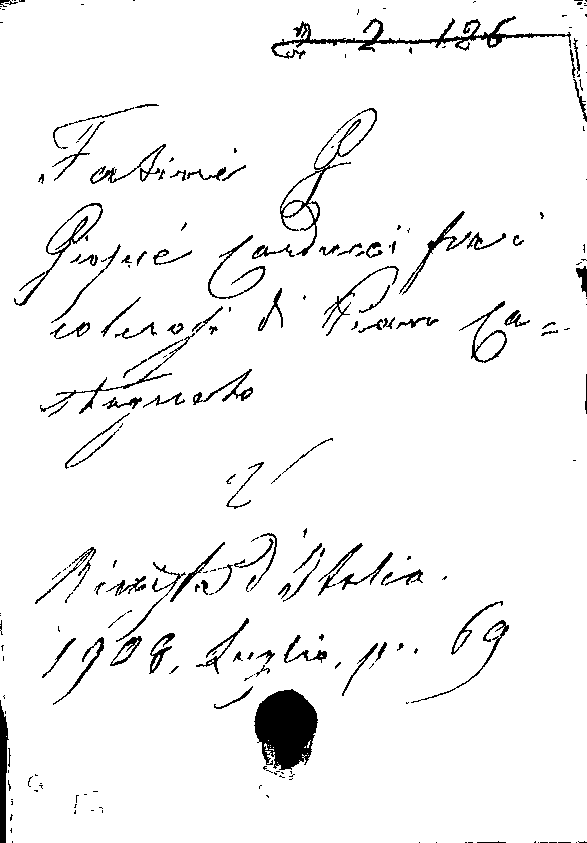 2. 2. 126
Fatini G
Giosuè Carducci fra i
colerosi di Pian Ca=
stagnaio
Rivista d'Italia.
1908. Luglio. p. 69